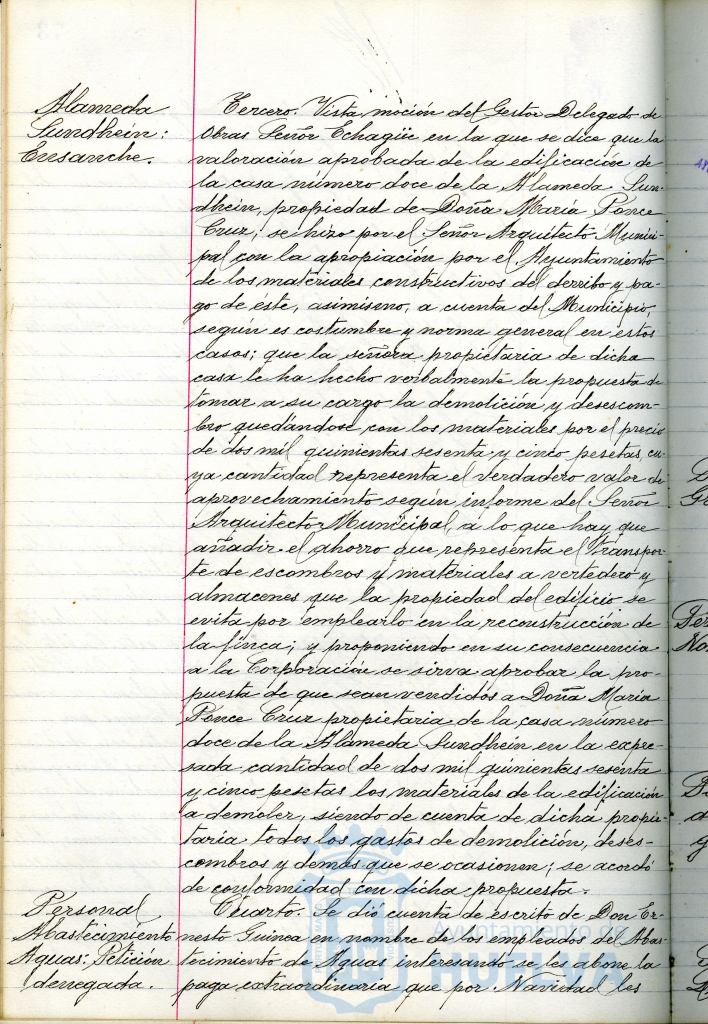 Alameda
Sundhein:
Ensanche.
Tercero. Vista moción del Gestor Delegado de
Obras Señor Echagüe en la que se dice que la
valoración aprobada de la edificación de
la casa número doce de la Alameda Sun-
dhein, propiedad de Doña María Ponce
Cruz, se hizo por el Señor Arquitecto Munici-
pal con la apropiación por el Ayuntamiento
de los materiales constructivos del derribo y pa-
go de este, asimismo, a cuenta del Municipio,
segun es costumbre y norma general en estos
casos; que la señora propietaria de dicha
casa le ha hecho verbalmente la propuesta de
tomar a su cargo la demolición y desescom-
bro quedándose con los materiales por el precio
de dos mil quinientas sesenta y cinco pesetas, cu-
ya cantidad representa el verdadero valor de
aprovechamiento según informe del Señor
Arquitecto Municipal a lo que hay que
añadir el ahorro que representa el transpor-
te de escombros y materiales a vertedero y
almacenes que la propiedad del edificio se
evita por emplearlo en la reconstrucción de
la finca; y proponiendo en su consecuencia
a la Corporación se sirva aprobar la pro-
puesta de que sean vendidos a Doña Maria
Ponce Cruz propietaria de la casa número
doce de la Alameda Sundhein en la expre-
sada cantidad de dos mil quinientas sesenta
y cinco pesetas los materiales de la edificación
a demoler, siendo de cuenta de dicha propie-
taria todos los gastos de demolición, deses-
combros y demás que se ocasionen; se acordó
de conformidad con dicha propuesta.
Personal
Abastecimiento
Aguas: Petición
denegada.
Cuarto. Se dió cuenta de escrito de Don Er-
nesto Guinea en nombre de los empleados del Abas-
tecimiento de Aguas interesando se les abone la
paga extraordinaria que por Navidad les
Ayuntamiento de
HUELVA